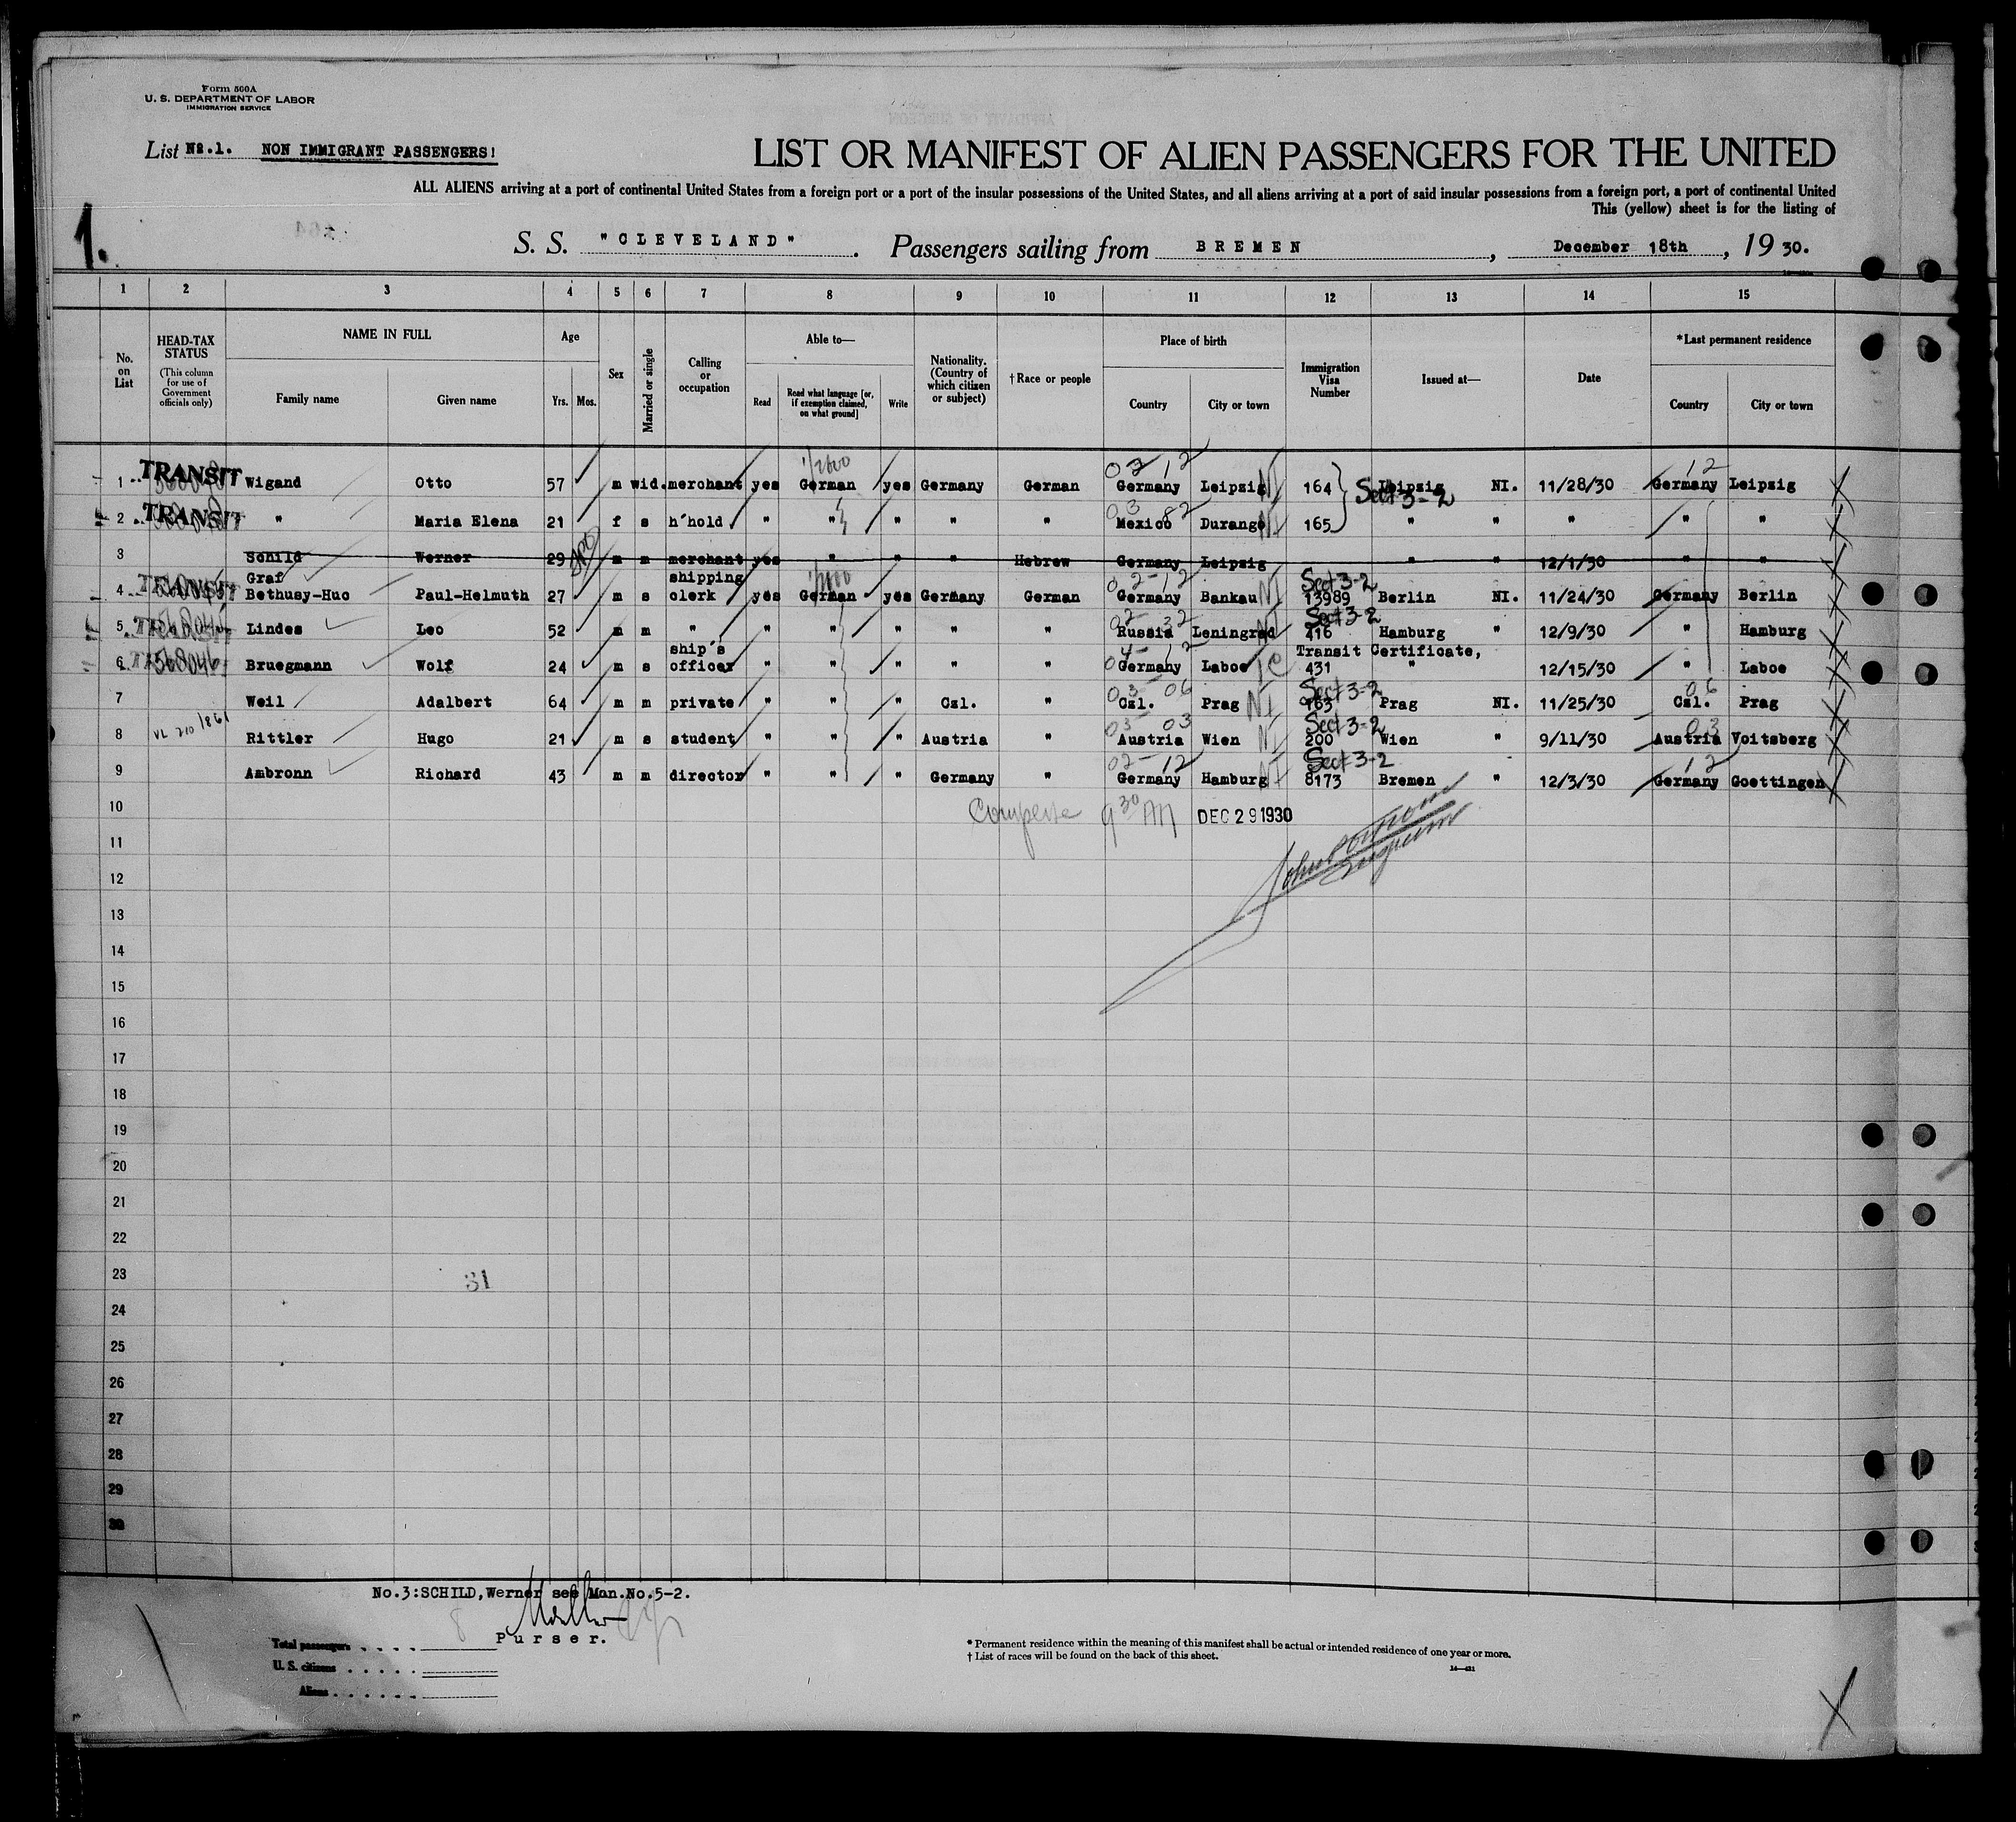 Form 500A
U. S. DEPARTMENT OF LABOR
IMMIGRATION SERVICE
List No.1. NON IMMIGRANT PASSENGERS!
LIST OR MANIFEST OF ALIEN PASSENGERS FOR THE UNITED
ALL ALIENS arriving at a port of continental United States from a foreign port or a port of the insular possessions of the United States, and all aliens arriving at a port of said insular possessions from a foreign port, a port of continental United
This (yellow) sheet is for the listing of
1.
S. S. "CLEVELAND". Passengers sailing from BREMEN, December 18th, 19 30.
1 2 3 4 5 6 7 8 9 10 11 12 13 14 15
No. on List
HEAD-TAX STATUS (This column for use of Government officials only)
NAME IN FULL Family name Given name
Age Yrs. Mos.
Sex
Married or single
Calling or occupation
Able to— Read Read what language [or, if exemption claimed, on what ground] Write
Nationality. (Country of which citizen or subject)
† Race or people
Place of birth Country City or town
Immigration Visa Number
Issued at—
Date
*Last permanent residence Country City or town
1 TRANSIT Wigand Otto 57 m wid. merchant yes German yes Germany German Germany Leipzig NI 164 Sect 3-2 Leipzig NI. 11/28/30 Germany Leipzig
2 TRANSIT " Maria Elena 21 f s h'hold " " " " " Mexico Durango NI 165 " " " " "
3 Schild Werner 29 m m merchant yes " " " Hebrew Germany Leipzig " " 12/1/30 " "
4 TRANSIT Graf Bethusy-Huc Paul-Helmuth 27 m s shipping clerk yes German yes Germany German Germany Bankau NI Sect 3-2 13989 Berlin NI. 11/24/30 Germany Berlin
5 Lindes Leo 52 m m " " " " " " Russia Leningrad NI Sect 3-2 416 Hamburg " 12/9/30 " Hamburg
6 568046 Bruegmann Wolf 24 m s ship's officer " " " " " Germany Laboe TC Transit Certificate, 431 " 12/15/30 " Laboe
7 Weil Adalbert 64 m m private " " " Czl. " Czl. Prag NI Sect 3-2 163 Prag NI. 11/25/30 Czl. Prag
8 Rittler Hugo 21 m s student " " " Austria " Austria Wien NI Sect 3-2 200 Wien " 9/11/30 Austria Voitsberg
9 Ambronn Richard 43 m m director " " " Germany " Germany Hamburg NI Sect 3-2 8173 Bremen " 12/3/30 Germany Goettingen
10 9 30 AM DEC 29 1930
11
12
13
14
15
16
17
18
19
20
21
22
23 31
24
25
26
27
28
29
30
No.3:SCHILD,Werner see Man.No.5-2.
Purser.
Total passengers 8
U. S. citizens
Aliens
* Permanent residence within the meaning of this manifest shall be actual or intended residence of one year or more.
† List of races will be found on the back of this sheet.